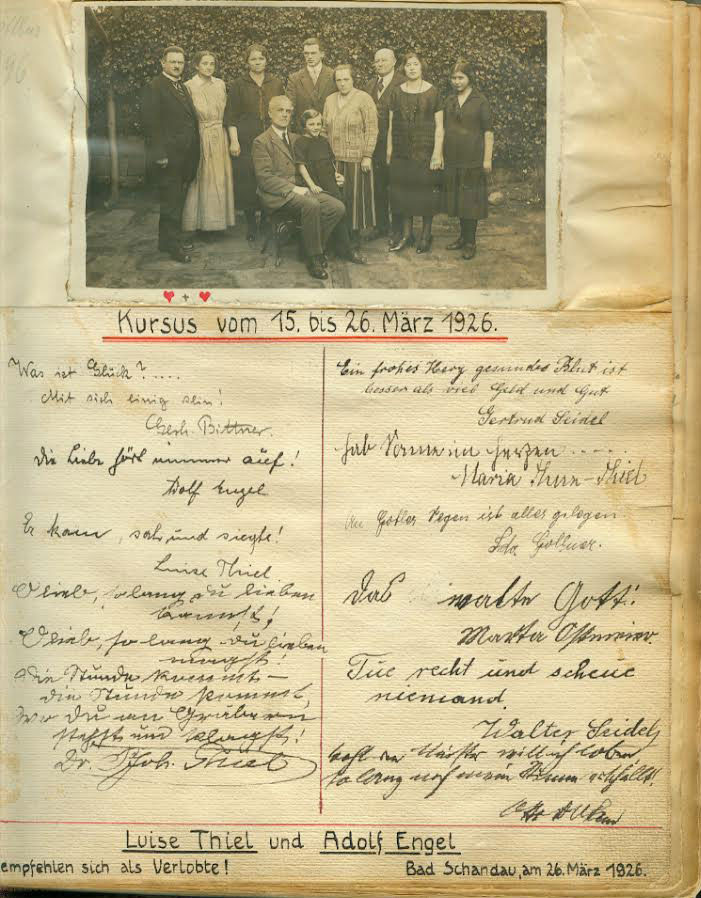 Kursus vom 15. bis 26. März 1926.
Was ist Glück? ....
Mit sich einig sein!
Gerh. Bittner.
Die Liebe hört nimmer auf!
Adolf Engel
Er kam, sah und siegte!
Luise Thiel.
O lieb, so lang du lieben
kannst!
O lieb, so lang du lieben
magst!
Die Stunde kommt –
die Stunde kommt,
wo du an Gräbern
stehst und klagst!
Dr. Joh. Thiel
Ein frohes Herz gesundes Blut ist
besser als viel Geld und Gut
Gertrud Seidel
Hab Sonne im Herzen .....
Maria Thiel
An Gottes Segen ist alles gelegen.
Das walte Gott!
Marta
Tue recht und scheue
niemand.
Walter Seidel
will ich loben,
so lang noch meine Stimme
Luise Thiel und Adolf Engel
empfehlen sich als Verlobte!
Bad Schandau, am 26. März 1926.